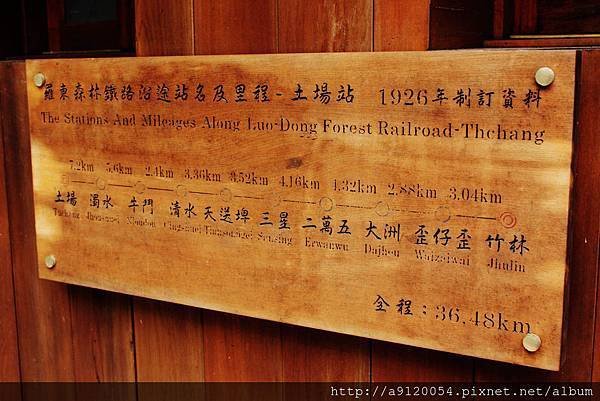 羅東森林鐵路沿途站名及里程-土場站 1926年制訂資料
The Stations And Mileages Along Luo-Dong Forest Railroad-Thchang
7.2km 5.6km 2.4km 3.36km 3.52km 4.16km 4.32km 2.88km 3.04km
土場 濁水 牛鬥 清水 天送埤 三星 二萬五 大洲 歪仔歪 竹林
Sansing Erwanwu Dajhou Waizaiwai Jhulin
全程：36.48km
http://a9120054.pixnet.net/album